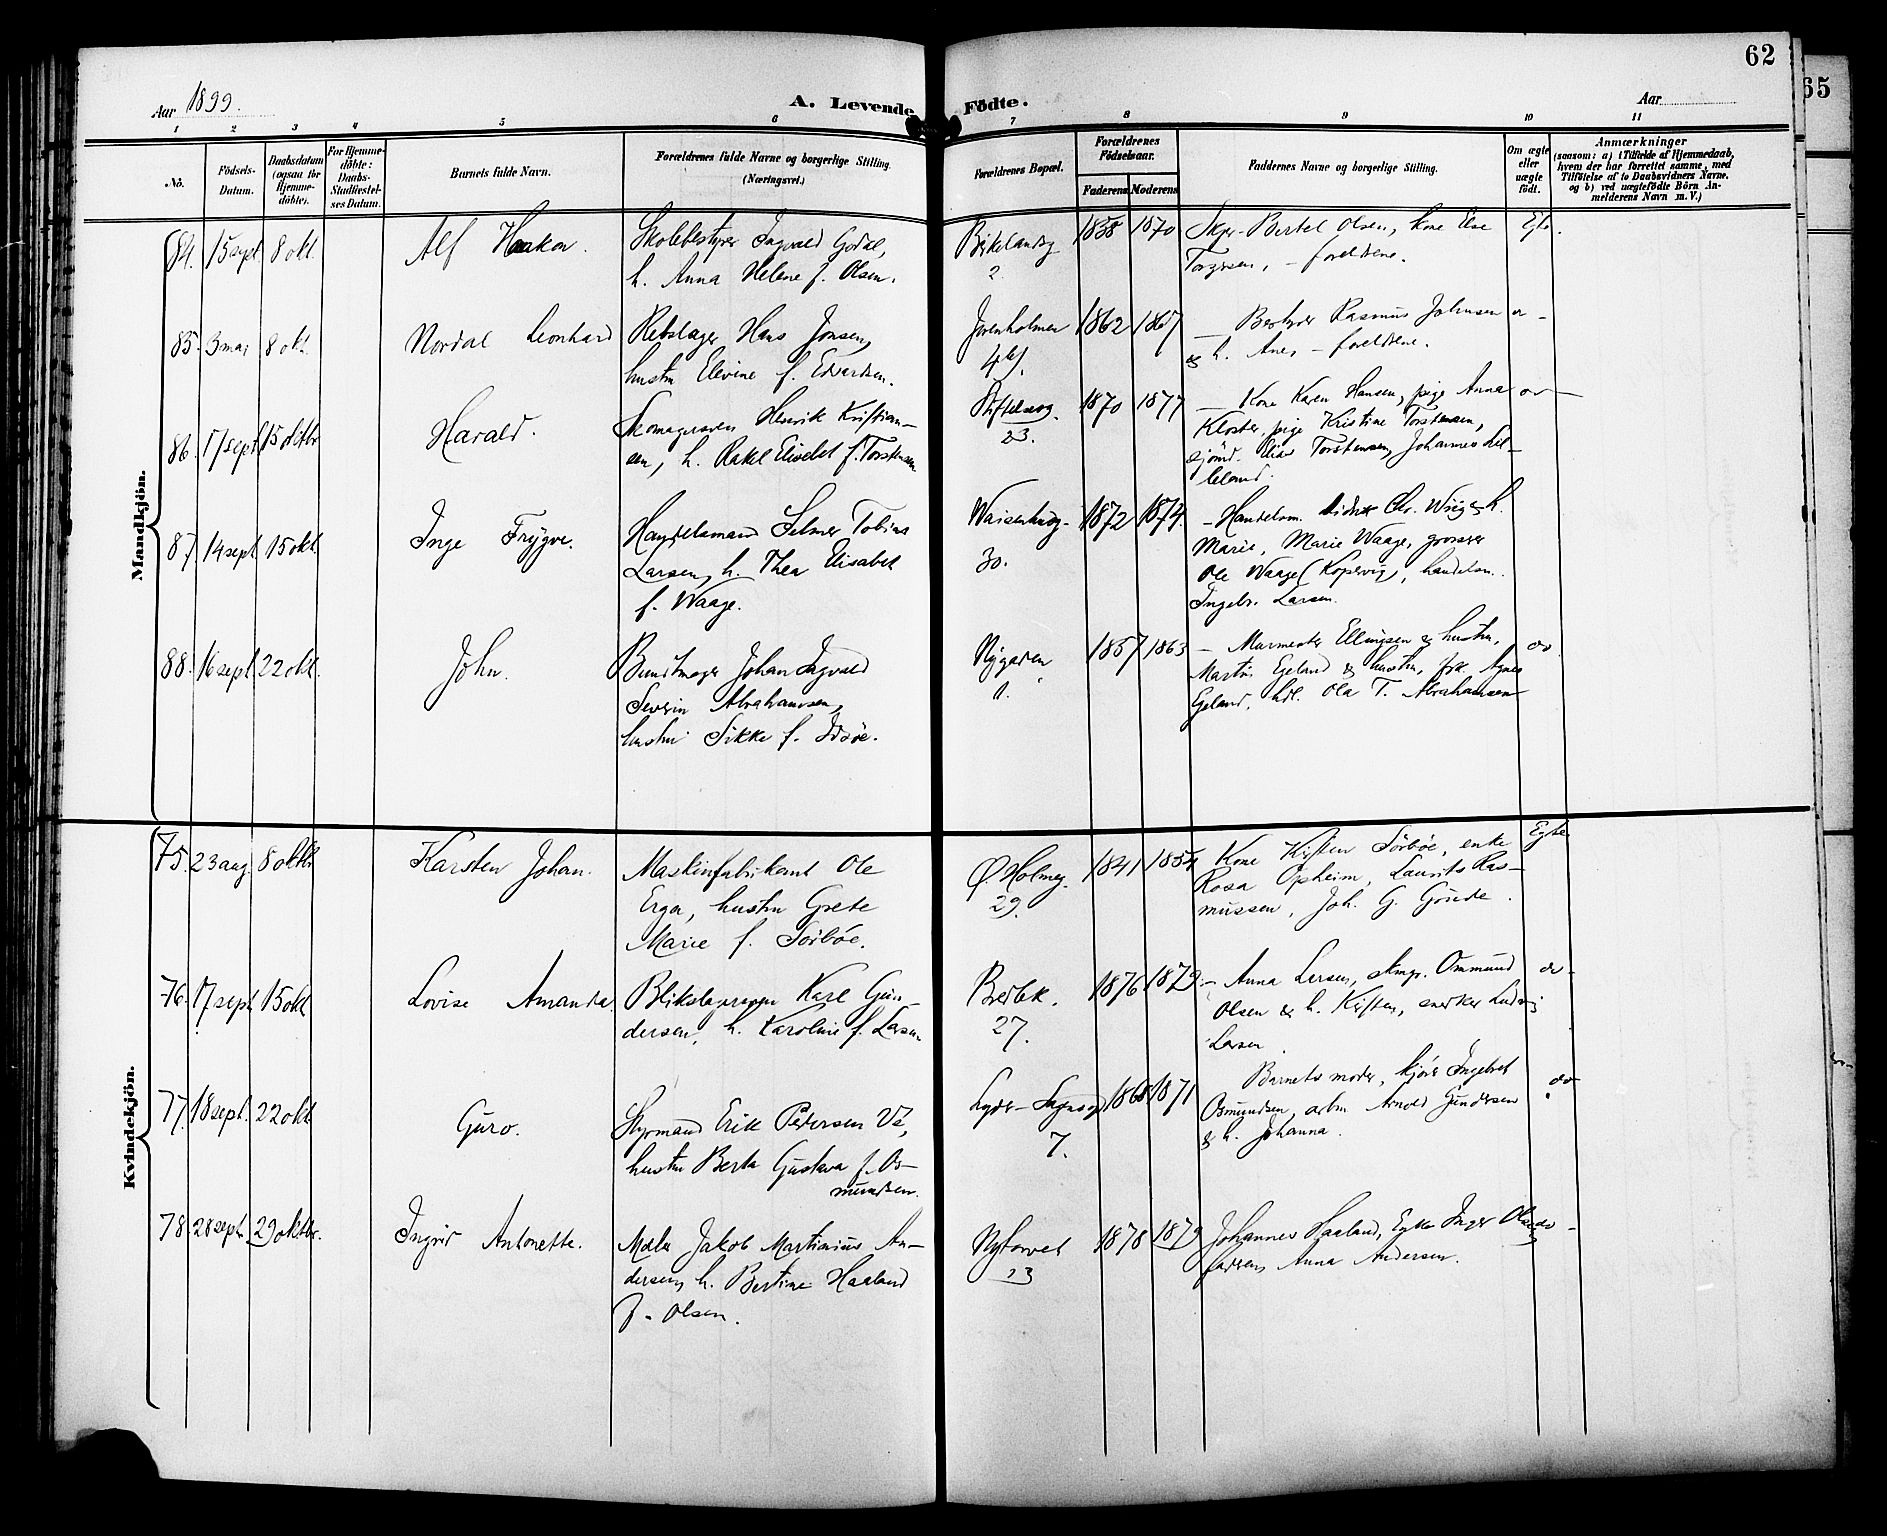 62
65
Aar 1899.
A. Levende Födte.
Aar
1 2 3 4 5 6 7 8 9 10 11
No.
Födsels-
Datum.
Daabsdatum
(ogsaa for
Hjemme-
döbte).
For Hjemme-
döbte:
Daabs-
Stadfæstel-
ses Datum.
Barnets fulde Navn.
Forældrenes fulde Navne og borgerlige Stilling.
(Næringsvei.)
Forældrenes Bopæl.
Forældrenes
Födselsaar.
Faderens
Moderens
Faddernes Navne og borgerlige Stilling.
Om ægte
eller
uægte
födt.
Anmærkninger
(saasom: a) i Tilfælde af Hjemmedaab,
hvem der har forrettet samme, med
Tilföielse af to Daabsvidners Navne.
og b) ved uægtefödte Börn An-
melderens Navn m. V.)
Mandkjön.
84. 15 sept 8 okt.
Alf Haakon.
Skolebestyrer Ingvald Godal,
h. Anna Helene f. Olsen.
Birkelandsg
2.
1838 1870
Bertel Olsen, kone Else
Torgersen, – foreldrene.
Egte.
85. 3 mai 8 okt.
Nordal Leonhard
Rebslager Hans Jonsen,
hustru Elevine f. Edvardsen.
Jorenholmen
1862 1867
– Rasmus Johnsen
& h. Ane, – foreldrene.
do –
86. 17 sept 15 oktbr
Harald.
Skomagersven Henrik Kristian-
sen, h. Rakel Elisebet f. Torstensen
Stiftelsesg.
23.
1870 1877
– Kone Karen Hansen, pige Anna
Kloster, pige Kristine Torstensen,
sjömd. Elias Torstensen, Johannes Lil-
leland.
do –
87. 14 sept 15 okt.
Inge Trygve.
Handelsmand Selmer Tobias
Larsen, h. Thea Elisabet
f. Waage.
Waisenhusg.
30.
1872 1874.
– Handelsm. Chr. Wiig & h.
Marie, Marie Waage, grosser
Ole Waage (Kopervig), handelsm.
Ingebr. Larsen.
88. 16 sept 22 okt.
John.
Buntmager Johan Ingvald
Severin Abrahamsen,
hustru Sikke f. Idsöe.
Nygaden
1.
1857 1863
– Murmester Ellingsen & hustru,
Martin Egeland & hustru, frk. Agnes
Egeland, hdl. Ola T. Abrahamsen
do.
Kvindekjön.
75. 23 aug 8 oktbr
Karsten Johan.
Maskinfabrikant Ole
Erga, hustru Grete
Marie f. Sörböe.
Ø. Holmeg.
29.
1841 1854
Kone Kirsten Sörböe, enke
Rosa Opheim, Laurits Ras-
mussen, Joh. G. Gjöude.
Egte
76. 17 sept 15 okt
Lovise Amanda
Blikslagersven Karl Gun-
dersen, h. Karoline f. Larsen
Berbk.
27.
1876 1872.
– Anna Larsen, skmgr. Ommund
Olsen & h. Kirsten, snekker Ludvig
Larsen.
do –
77. 18 sept. 22 okt
Guro.
Styrmand Erik Petersen
hustru Berta Gustava f. Os-
mundsen.
Lyder-Sagensg
7.
1868 1871
Barnets moder, kjörer Ingebret
Osmundsen, arbm Arnold Gundersen
& h. Johanna.
do
78. 28 sept. 29 oktbr.
Ingrid Antonette.
Maler Jakob Martinius An-
dersen, h. Bertine Haaland
f. Olsen.
Nytorvet
13
1878 1879
Johannes Haaland, Inger Olsen,
faderen, Anna Andersen.
do –